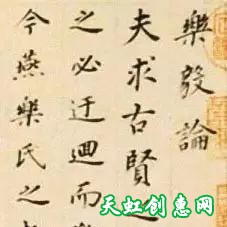 樂毅論
夫求古賢之
之必迂迴而難
今燕樂氏之
天虹创惠网